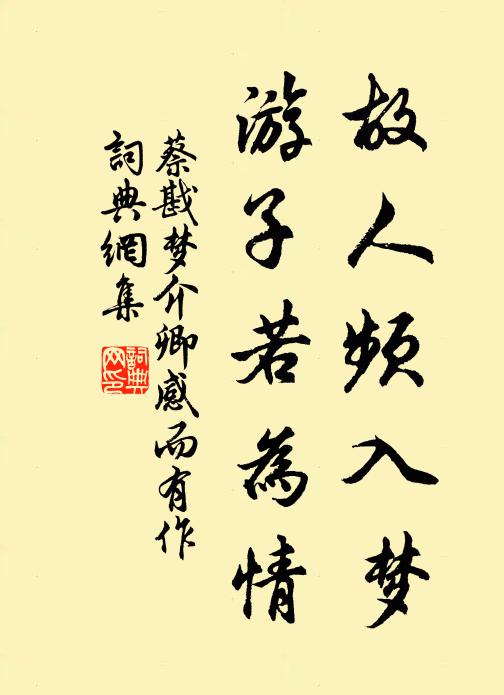 故人频入梦
游子若為情
蔡戡梦介卿感而有作
詞典網集
詞典网印